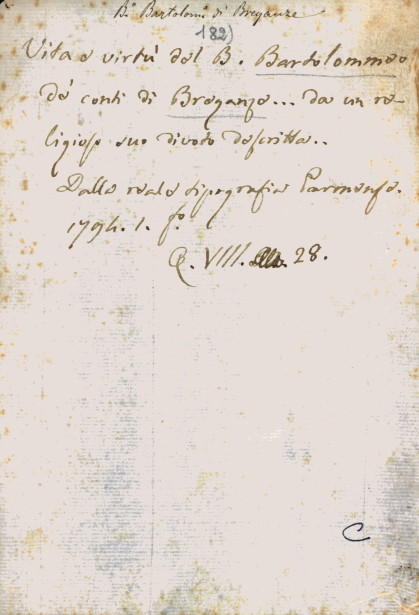 B.º Bartolom. di Breganze
182)
Vita e virtù del B. Bartolommeo
de' conti di Breganze... da un re-
ligioso suo divoto descritta..
Dalla reale tipografia Parmense.
1794. 1. fº.
Q. VIII. 28.
C